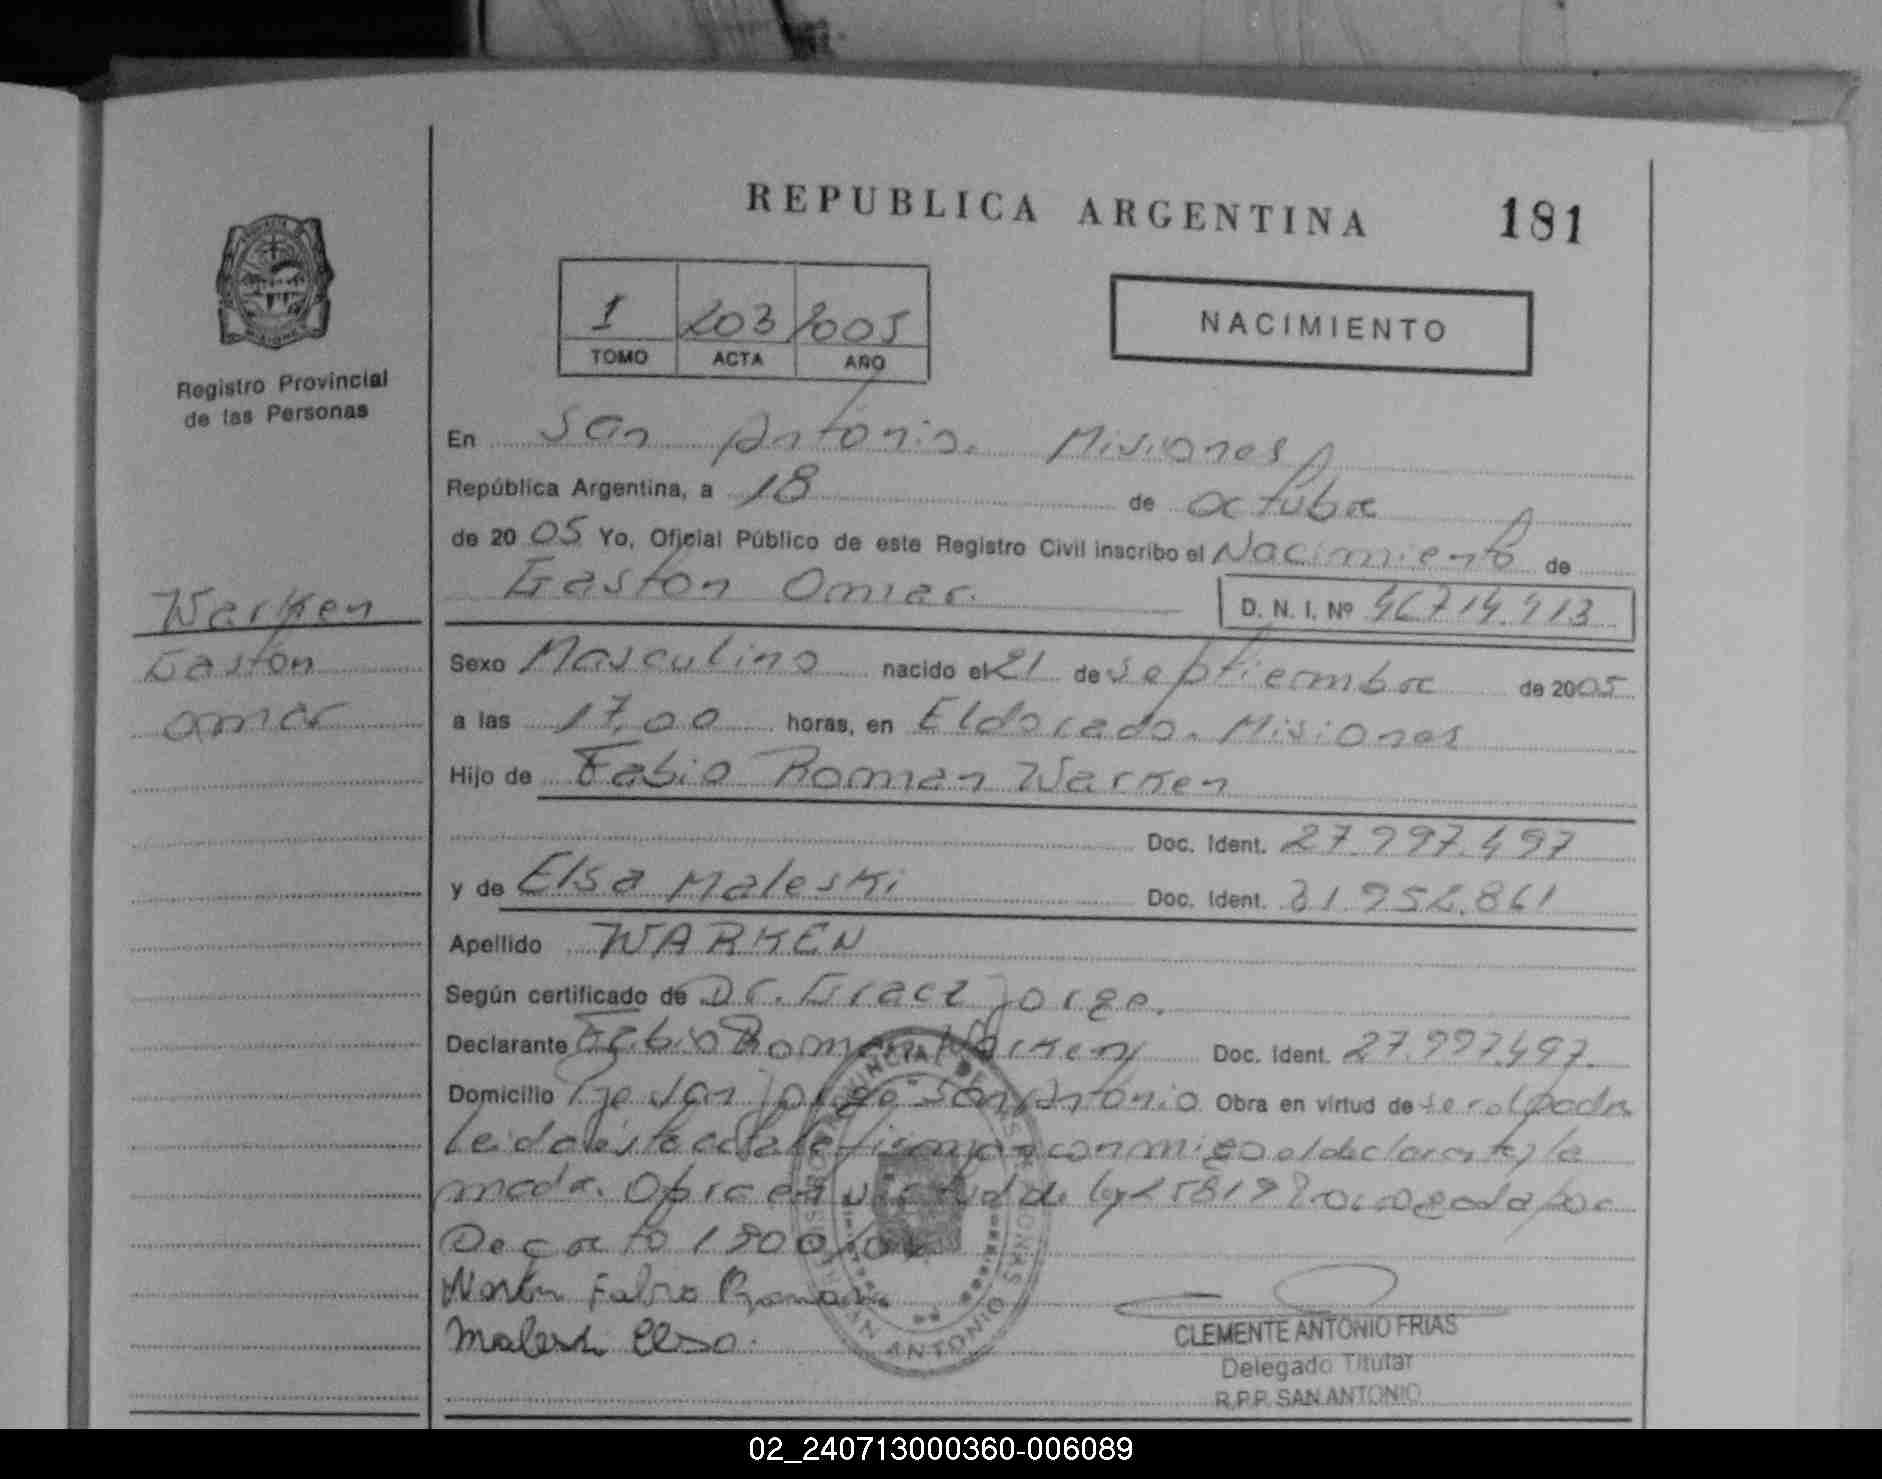 REPUBLICA ARGENTINA 181
1 203 2005
TOMO ACTA AÑO
NACIMIENTO
Registro Provincial
de las Personas
En San Antonio. Misiones
República Argentina, a 18 de octubre
de 2005 Yo, Oficial Público de este Registro Civil inscribo el Nacimiento de
Gaston Omar. D. N. I. Nº 46714.413
Warken
Gaston
omar
Sexo Masculino nacido el 21 de septiembre de 2005
a las 17,00 horas, en Eldorado. Misiones
Hijo de Fabio Roman Warken
Doc. Ident. 27.997.497
y de Elsa Maleski Doc. Ident. 31.952.861
Apellido WARKEN
Según certificado de Dr. Jorge.
Declarante Fabio Roman Warken Doc. Ident. 27.997.497.
Domicilio San Jorge San Antonio Obra en virtud de ser el padre
Leida esta acta la firman conmigo el declarante y la
madre. Obra en virtud de ley por
Decreto
Warken Fabio Roman
Maleski Elsa.
REGISTRO PROVINCIAL DE LAS PERSONAS
SAN ANTONIO MISIONES
CLEMENTE ANTONIO FRIAS
Delegado Titular
R.P.P. SAN ANTONIO
02_240713000360-006089